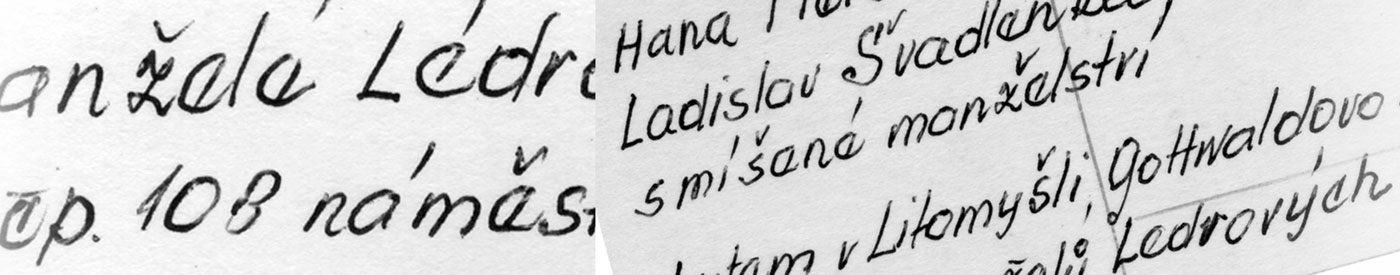 anželé Lédro
čp. 108 náměs
Hana
Ladislav Švadlen
smíšené manželství
v Litomyšli, Gottwaldovo
Ledrových